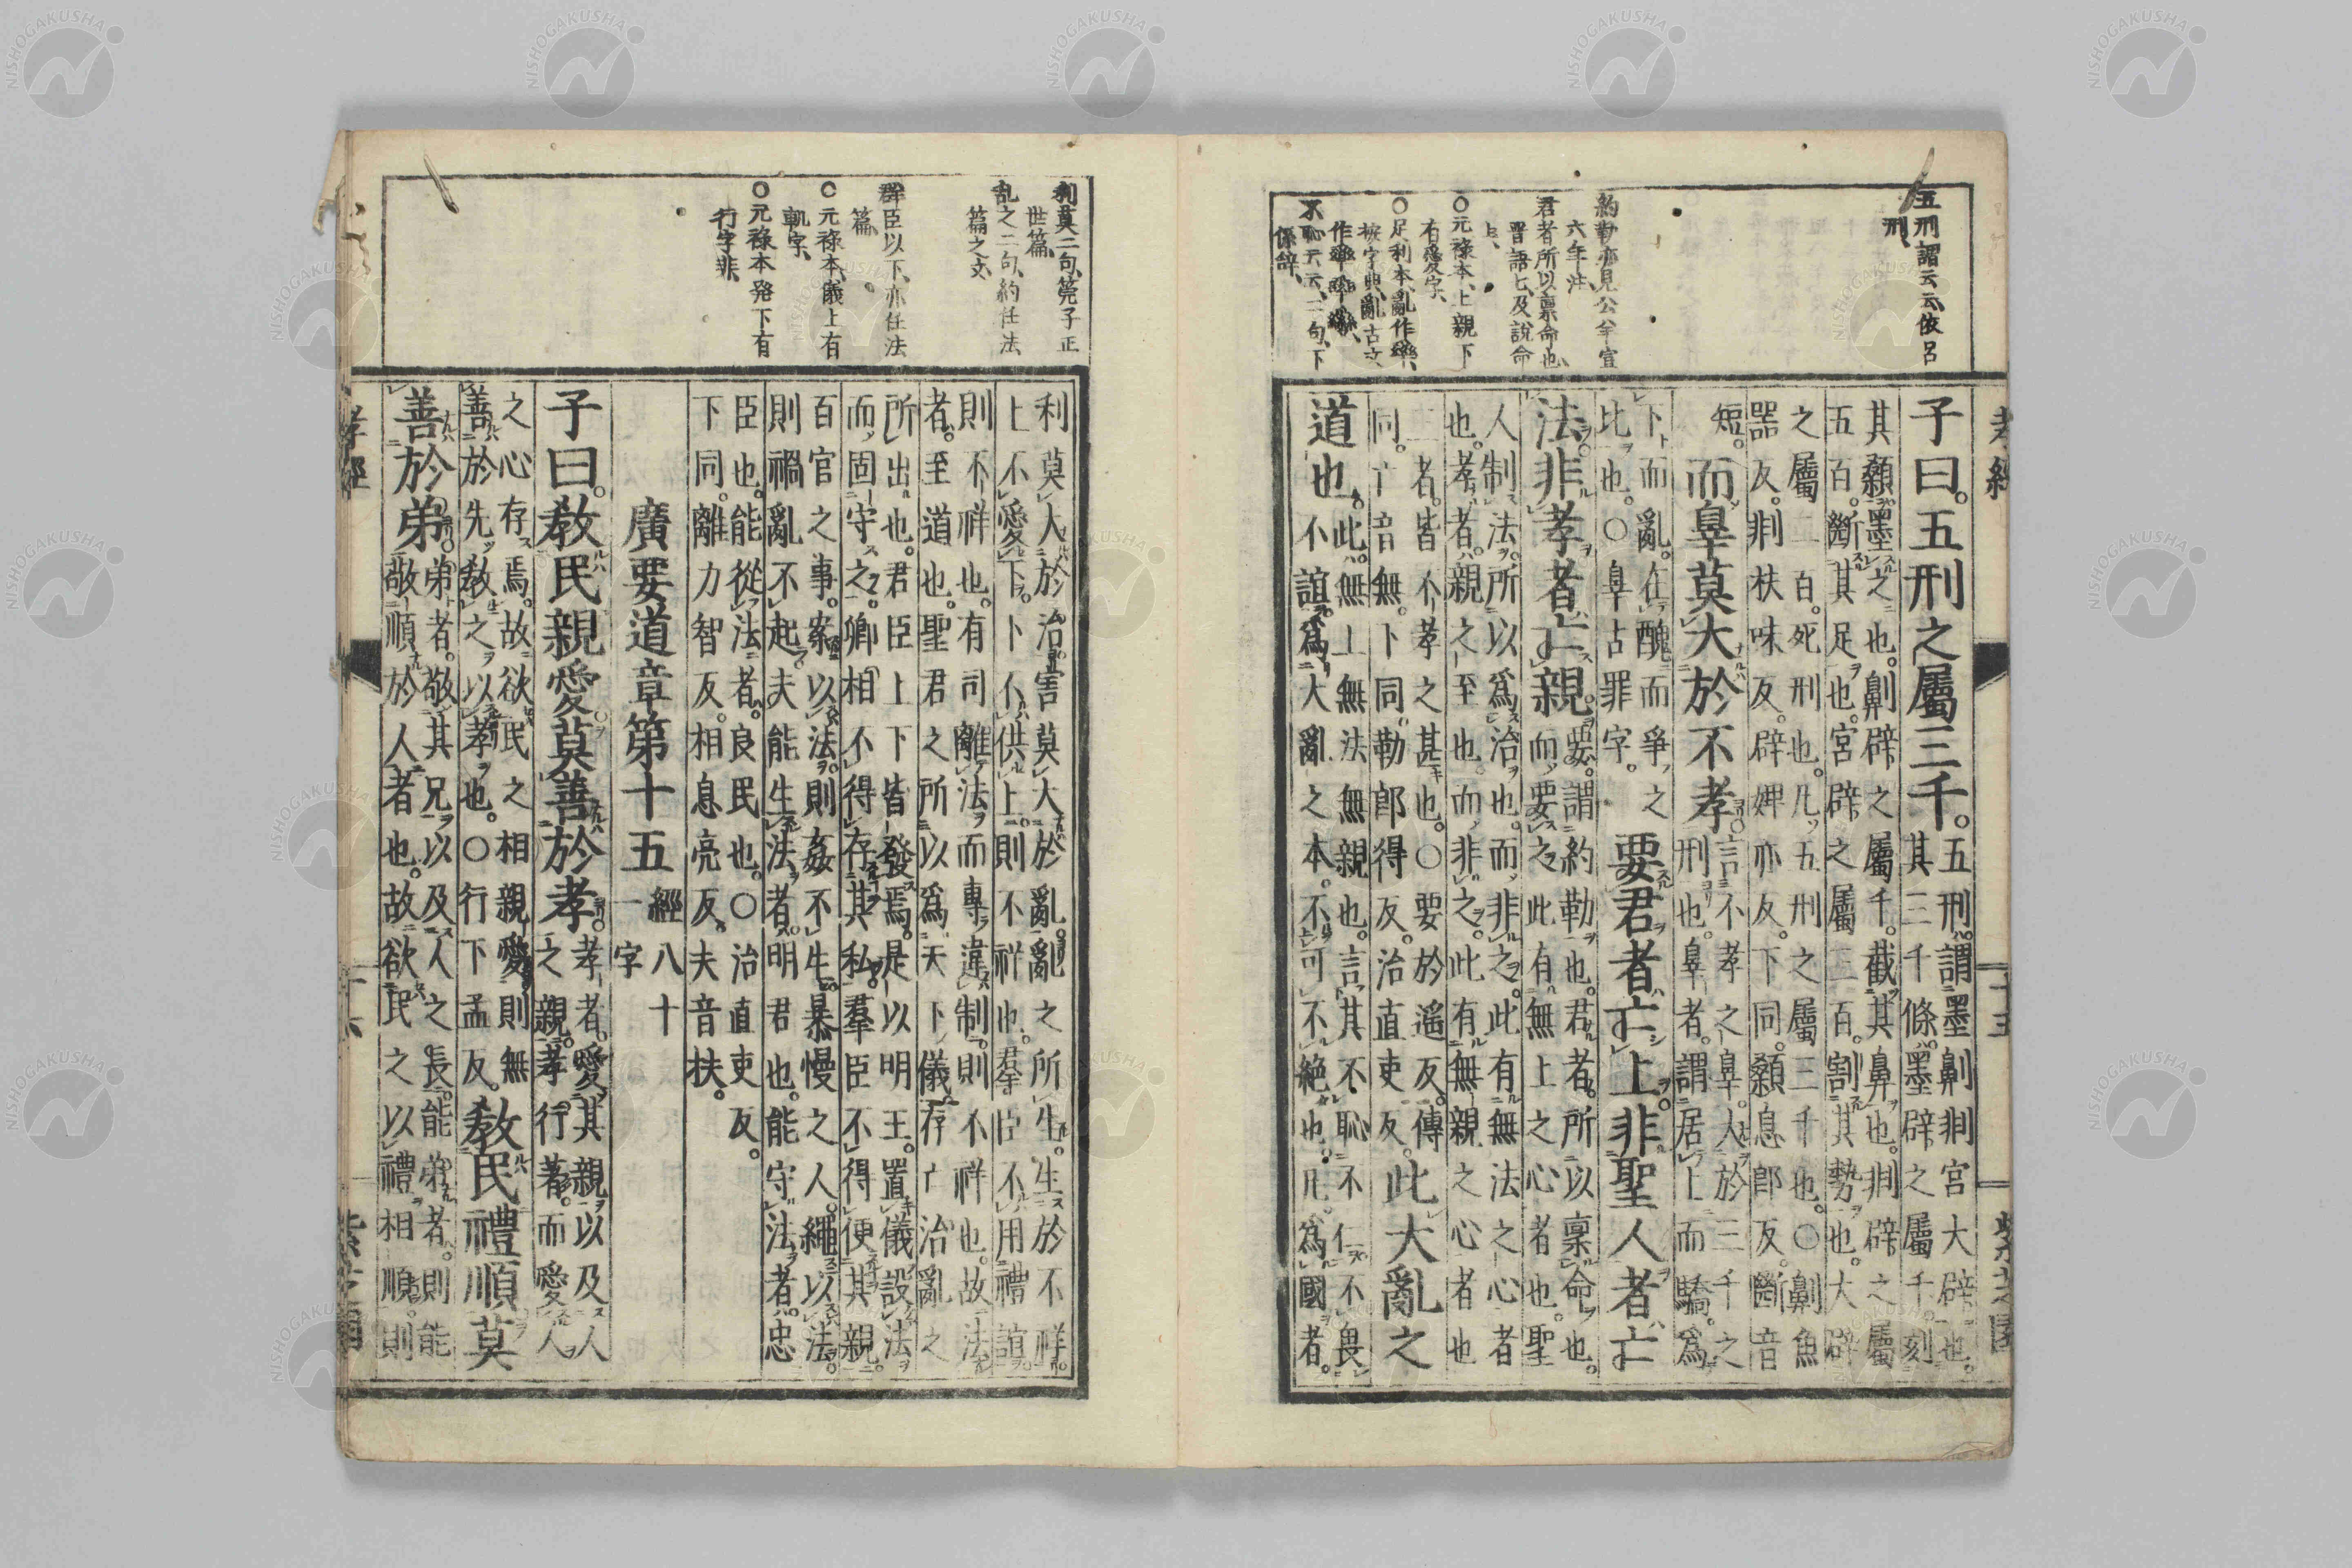 五刑謂云云、依呂
刑、
約勒亦見公羊宣
六年注、
君者所以稟命也、
晋語七、及説命
上、
○元祿本、上親下
有愛字、
○足利本、亂作𤔔、
按字典、亂古文
不恥云云、二句、下
係辞、
孝經
子曰。五刑之屬三千。
五刑。謂墨劓剕宮大辟也。
其三千條。墨辟之屬千。刻
其顙墨之也。劓辟之屬千。截其鼻也。剕辟之屬
五百。斷其足也。宮辟之屬三百。割其勢也。大辟
之屬二百。死刑也。凡五刑之屬三千也。○劓魚
器反。剕扶味反。辟婢亦反。下同。顙息郎反。斷音
短。
而辠莫大於不孝。
言不孝之辠。大於三千之
刑也。辠者。謂居上而驕。爲
下而亂。在醜而爭之
比也。○辠古罪字。
要君者亡上。非聖人者亡
法。非孝者亡親。
要。謂約勒也。君者。所以稟命也。
而要之。此有無上之心者也。聖
人制法。所以爲治也。而非之。此有無法之心者
也。孝者。親之至也。而非之。此有無親之心者也
三者。皆不孝之甚也。○要於遥反。傳
同。亡音無。下同。勒郎得反。治直吏反。
此大亂之
道也。
此。無上無法無親也。言其不恥不仁。不畏
不誼。爲大亂之本。不可不絶也。凡爲國者。
十五
紫芝園
利莫二句、筦子正
世篇、
乱之二句、約任法
篇之文、
群臣以下、亦任法
篇、
○元祿本、儀上有
軌字、
○元祿本発下有
行字非、
利莫大於治。害莫大於亂。亂之所生。生於不祥
上不愛下。下不供上。則不祥也。羣臣不用禮誼。
則不祥也。有司離法而專違制。則不祥也。故法
者。至道也。聖君之所以爲天下儀。存亡治亂之
所出也。君臣上下皆發焉。是以明王。置儀設法
而固守之。卿相不得存其私。羣臣不得便其親。
百官之事。案以法。則姦不生。暴慢之人。繩以法。
則禍亂不起。夫能生法者。明君也。能守法者。忠
臣也。能從法者。良民也。○治直吏反。
下同。離力智反。相息亮反。夫音扶。
廣要道章第十五
經八十
一字
子曰。敎民親愛莫善於孝。
孝者。愛其親以及人
之親。孝行著。而愛人
之心存焉。故欲民之相親愛。則無
善於先敎之以孝也。○行下孟反。
敎民禮順莫
善於弟。
弟者。敬其兄以及人之長。能弟者。則能
敬順於人者也。故欲民之以禮相順。則
孝經
十六
紫芝園